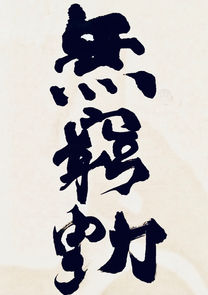 無窮動